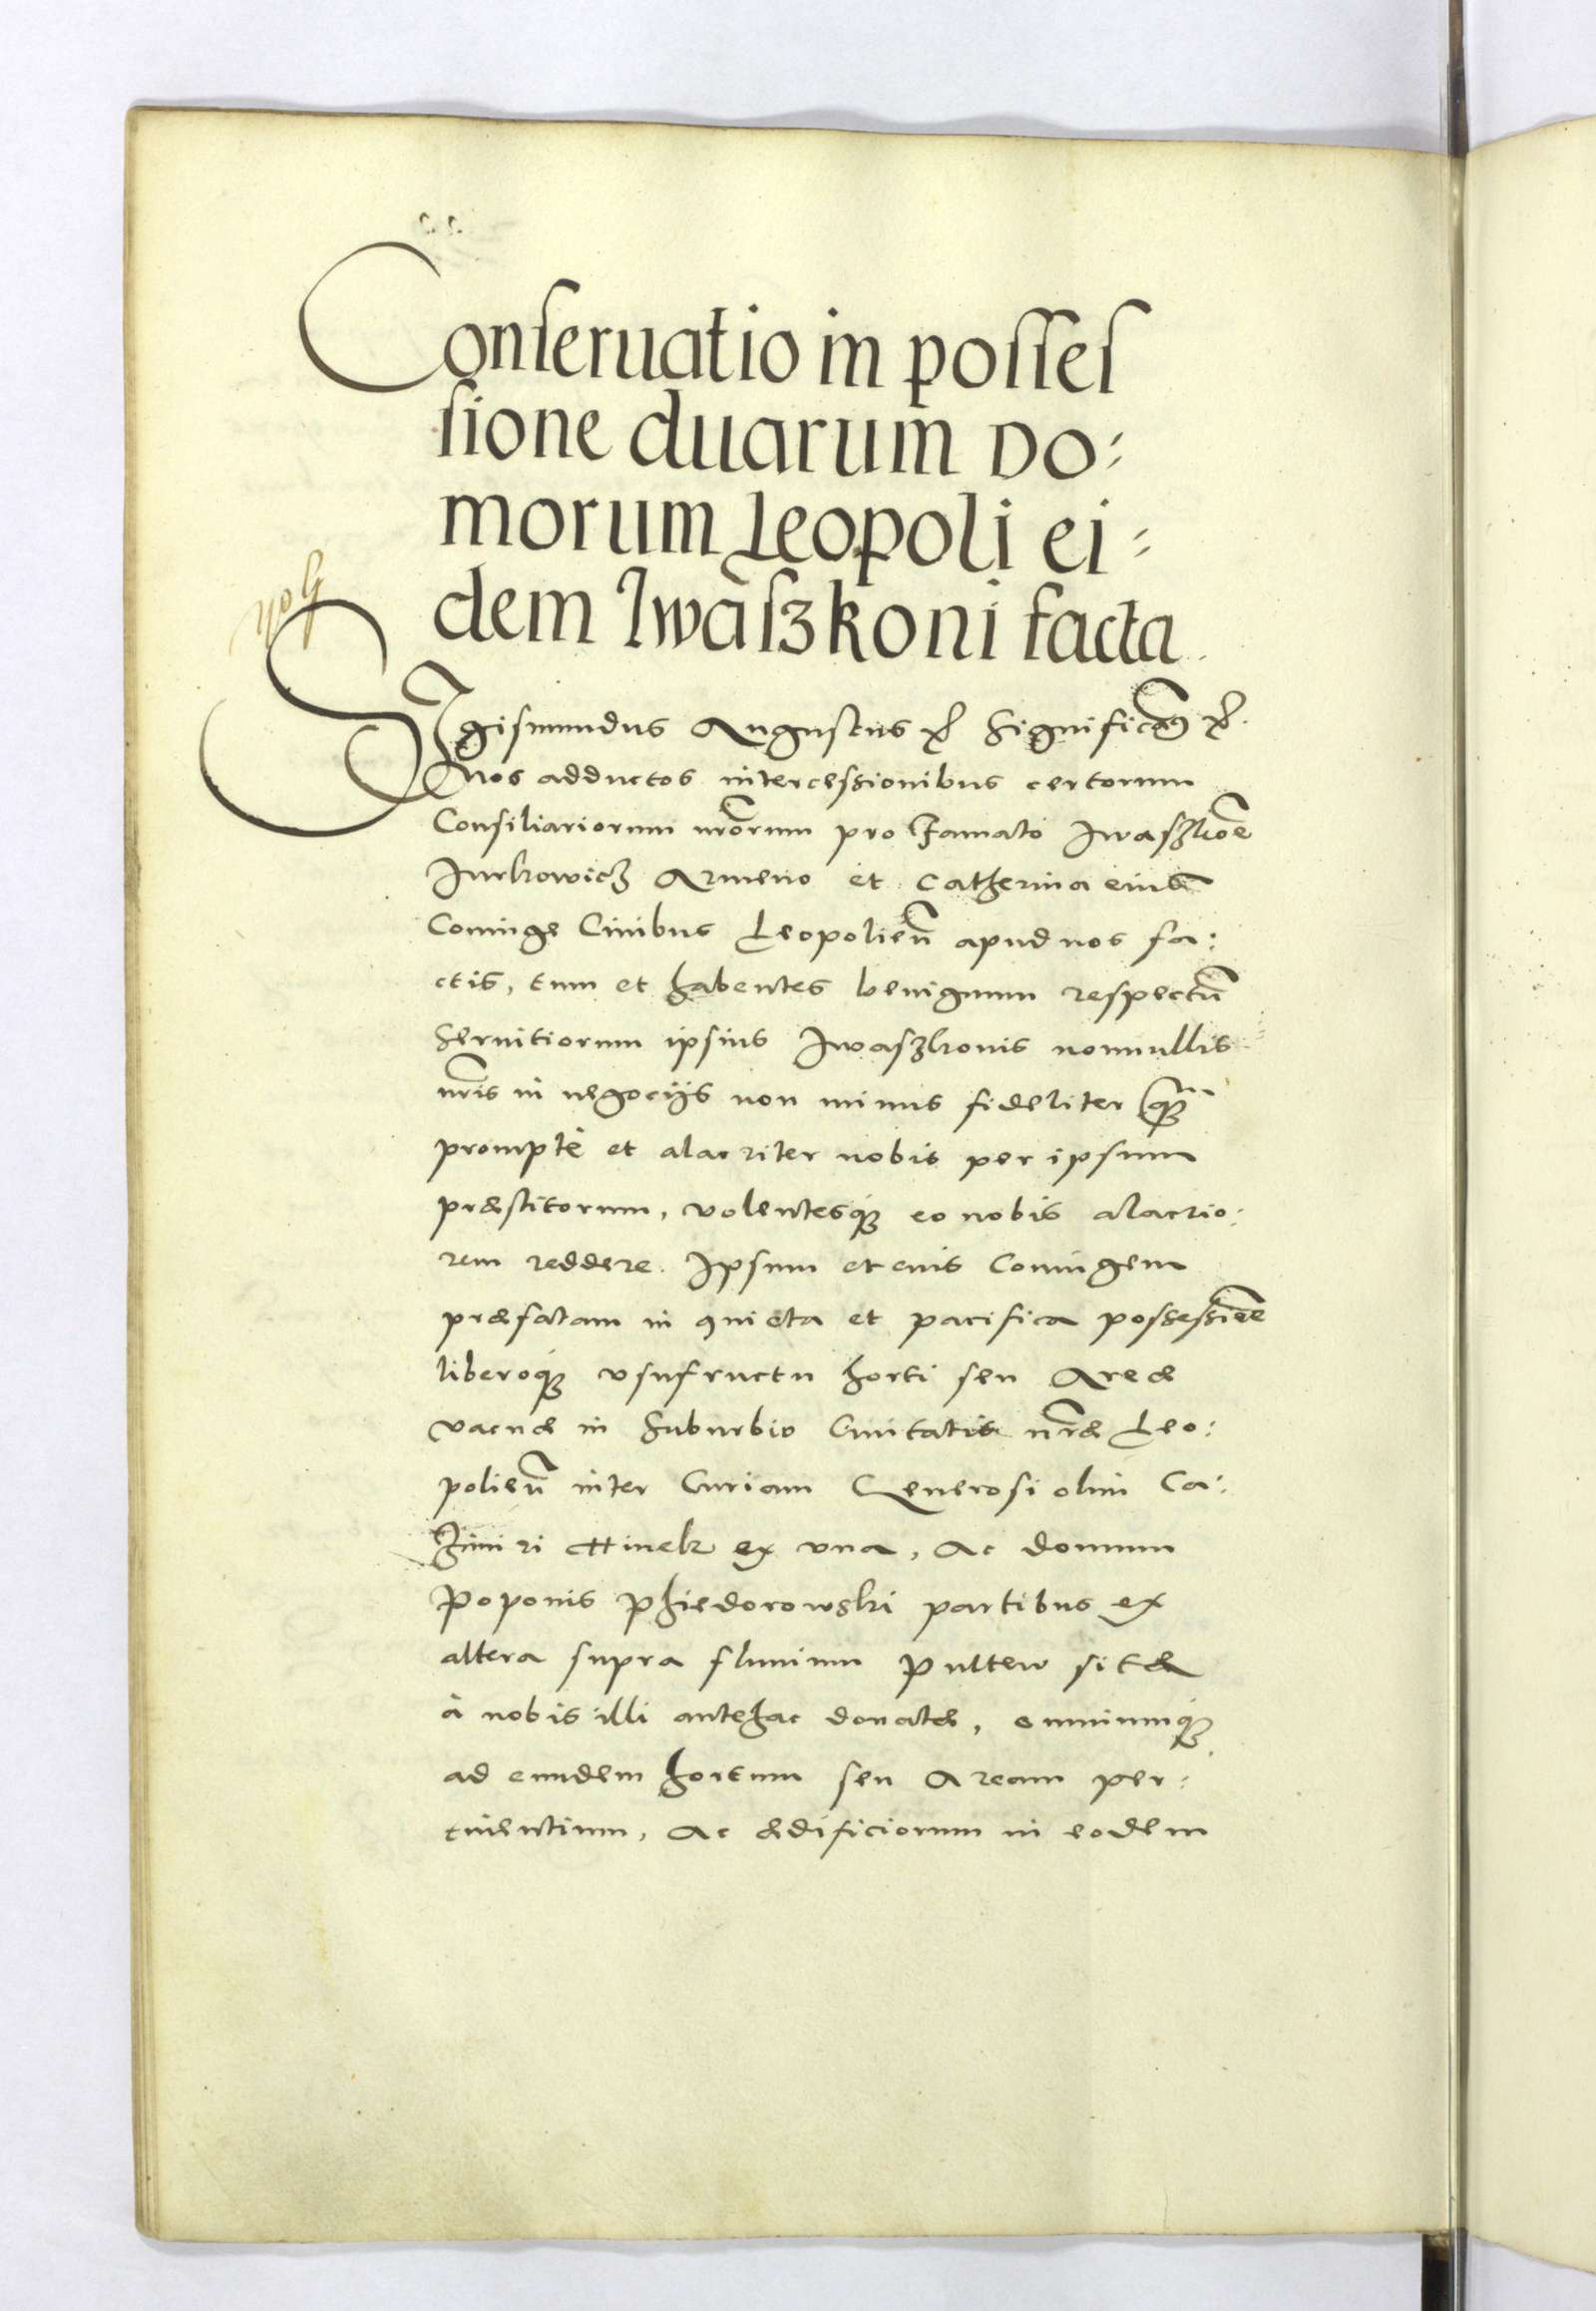 Conseruatio in posses
sione duarum Do:
morum Leopoli ei:
dem Iwaszkoni facta
Sigismundus Augustus Significam9
Nos adductos intercessionibus certorum
Consiliariorum nrõrum pro Famato Iwaszkoẽ
Jurkowicz Armeno et Catherina eius
Coniuge Ciuibus Leopolieñ apud nos fa:
ctis, tum et habentes benignum respectũ
Seruitiorum ipsius Iwaszkonis nonnullis
nr̃is in negocijs non minus fideliter
prompte et alacriter nobis per ipsum
præstitorum, volentesq3 eo nobis alacrio:
rem reddere. Ipsum et eius Coniugem
præfatam in quieta et pacifica possessioẽe
liberoq3 vsufructu horti seu Areæ
vacuæ in Suburbio Ciuitatis nr̃æ Leo:
polieñ inter Curiam Generosi olim Ca:
zimiri ex vna, Ac domum
Poponis Phiedorowski partibus ex
altera supra fluuium Pultew sitæ
à nobis illi antehac donatæ, omniumq3
ad eundem hortum seu Aream per:
tinentium, Ac ædificiorum in eodem